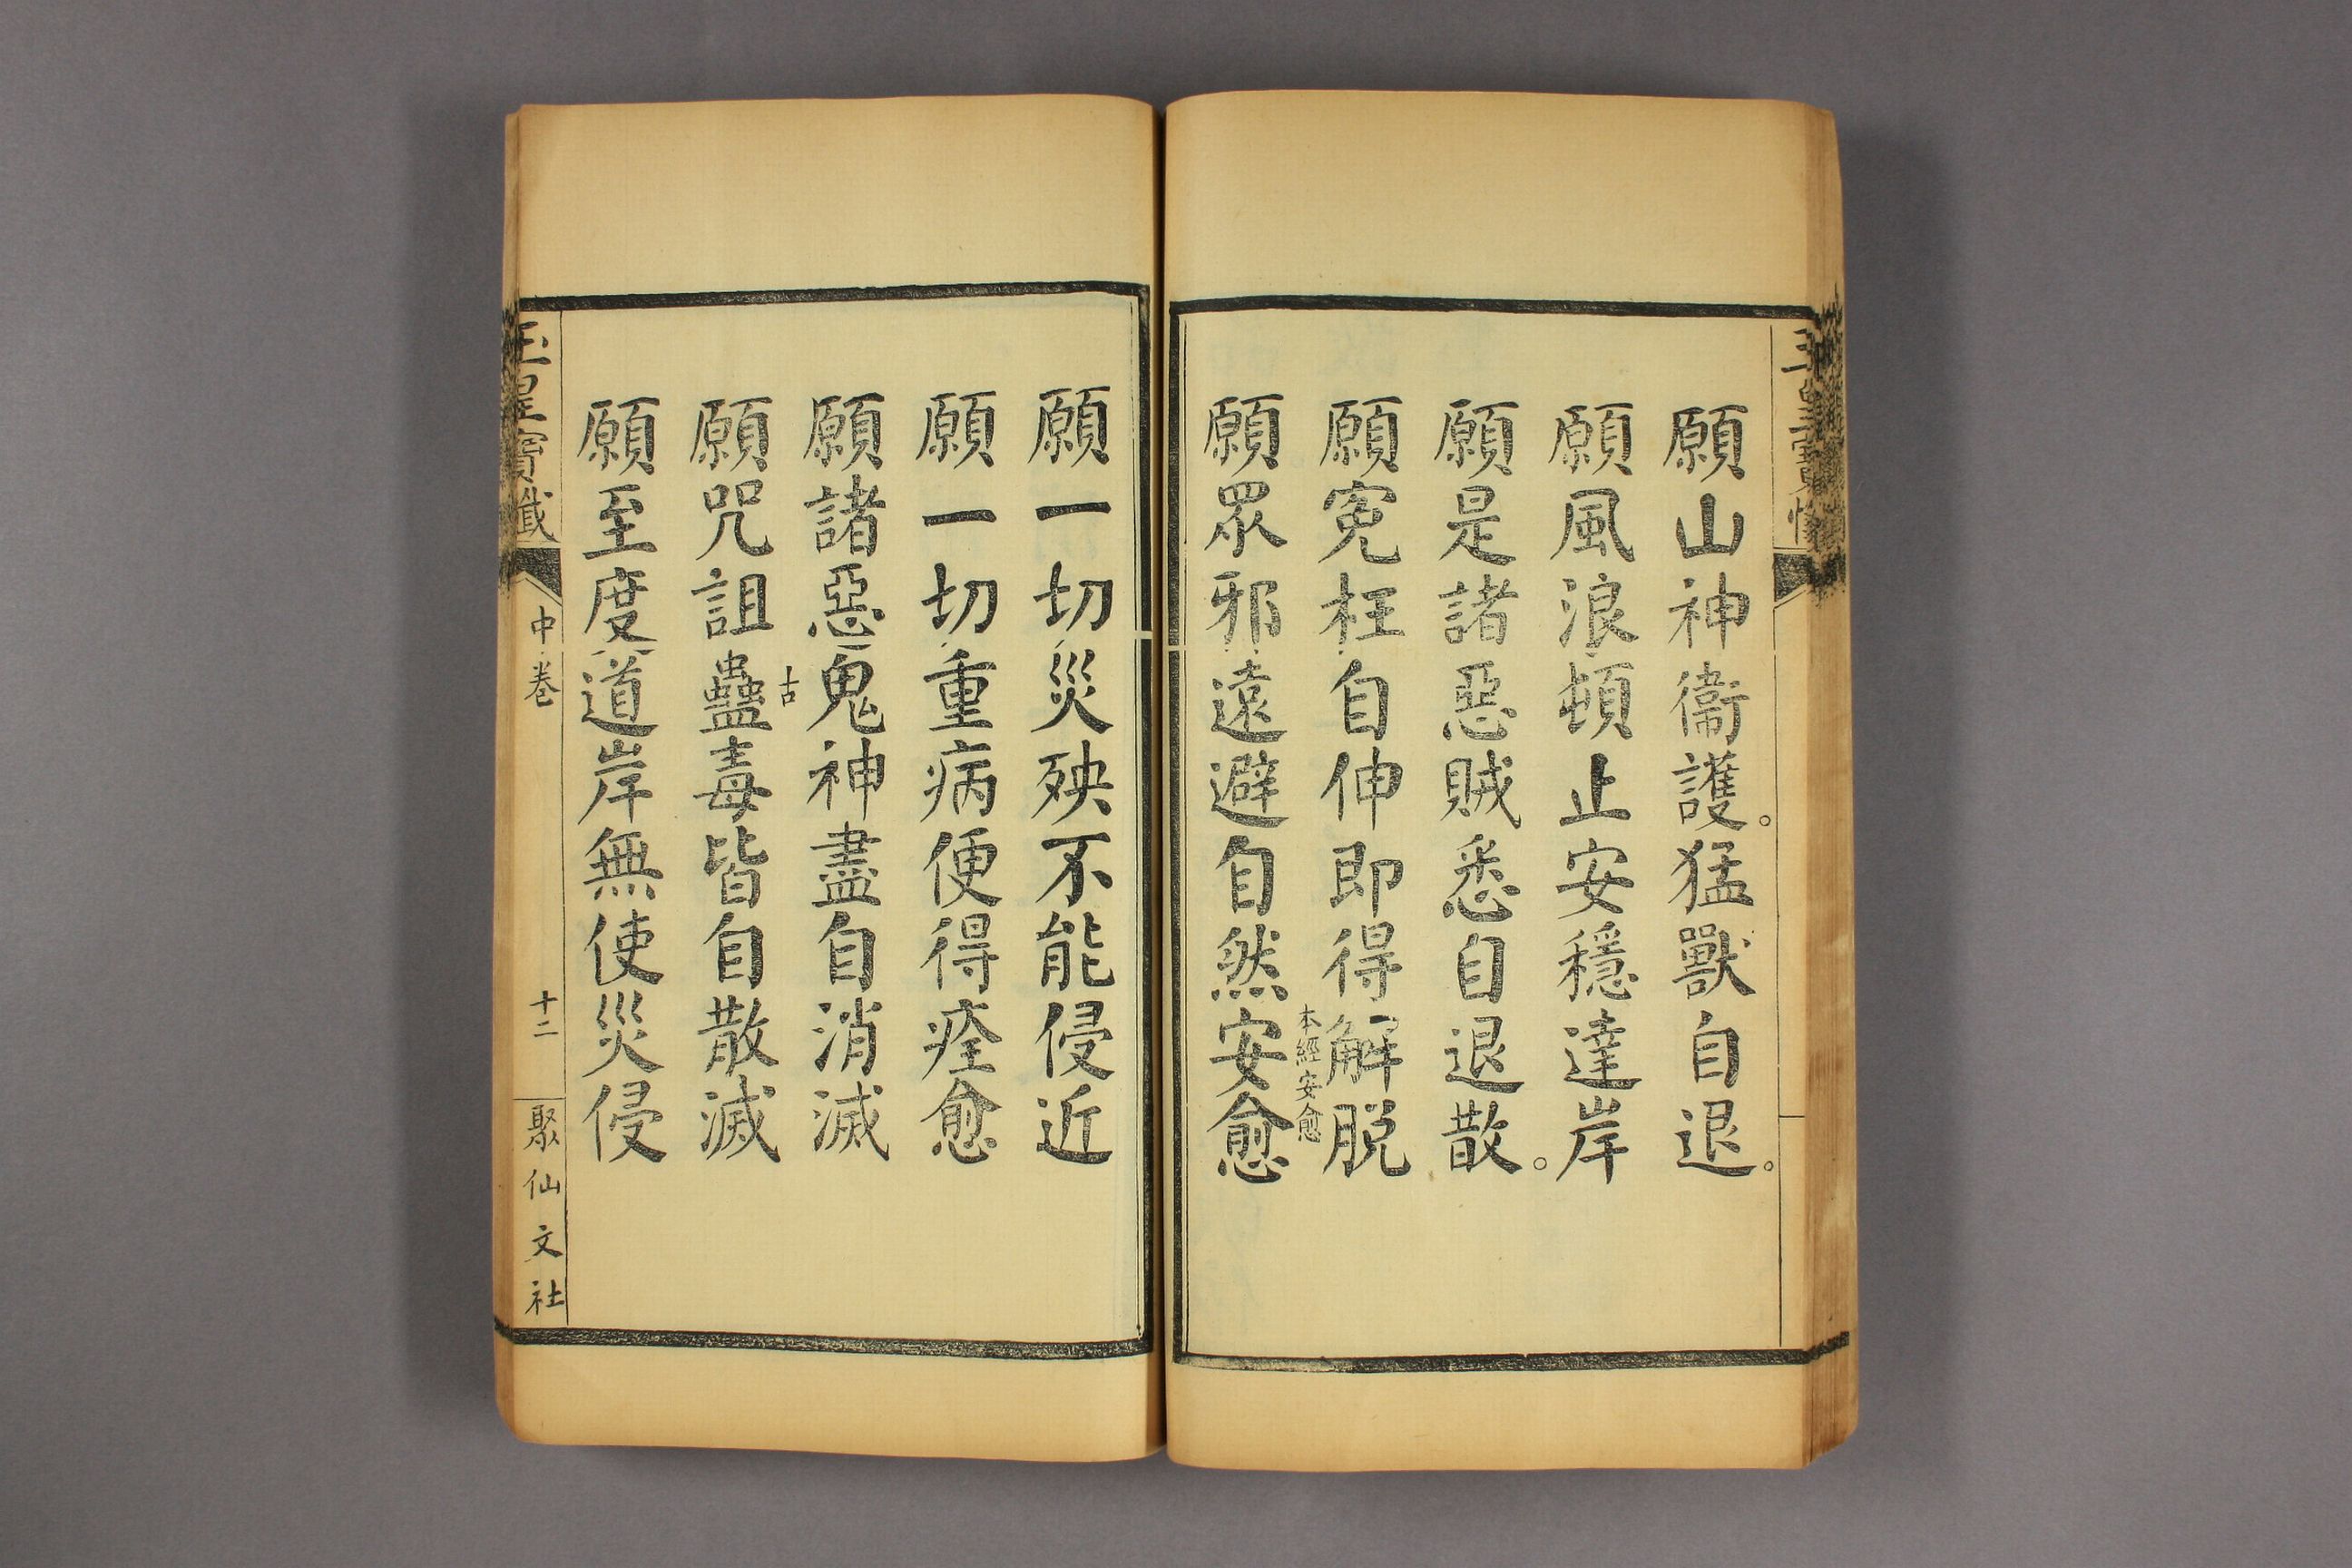 玉皇寶懺
願山神衞護。猛獸自退。
願風浪頓止安穩達岸
願是諸惡賊悉自退散。
願寃枉自伸即得解脫
本經安愈
願眾邪遠避自然安愈
願一切災殃不能侵近
願一切重病便得痊愈
願諸惡鬼神盡自消滅
古
願咒詛蠱毒皆自散滅
願至度道岸無使災侵
玉皇寶懺
中卷
十二
聚仙文社